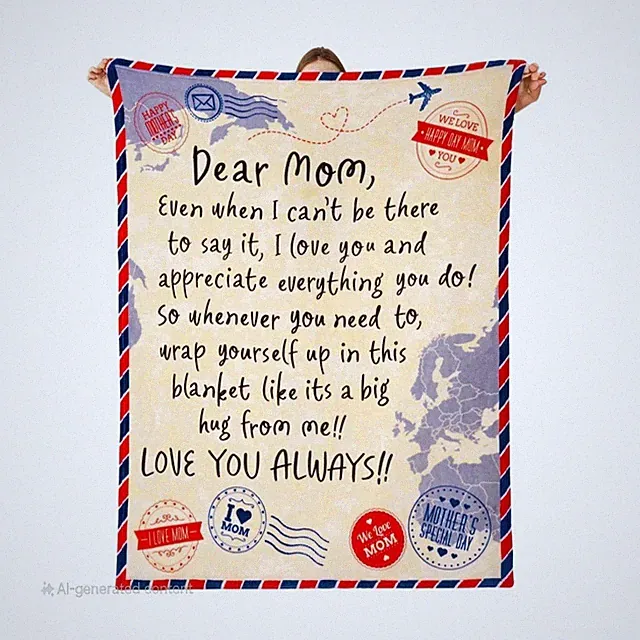 HAPPY
MOTHER'S
DAY
WE LOVE
HAPPY DAY MOM
YOU
Dear Mom,
Even when I can't be there
to say it, I love you and
appreciate everything you do!
So whenever you need to,
wrap yourself up in this
blanket like its a big
hug from me!!
LOVE YOU ALWAYS!!
I LOVE MOM
I ♥
MOM
We Love
MOM
MOTHER'S
SPECIAL DAY
AI-generated content